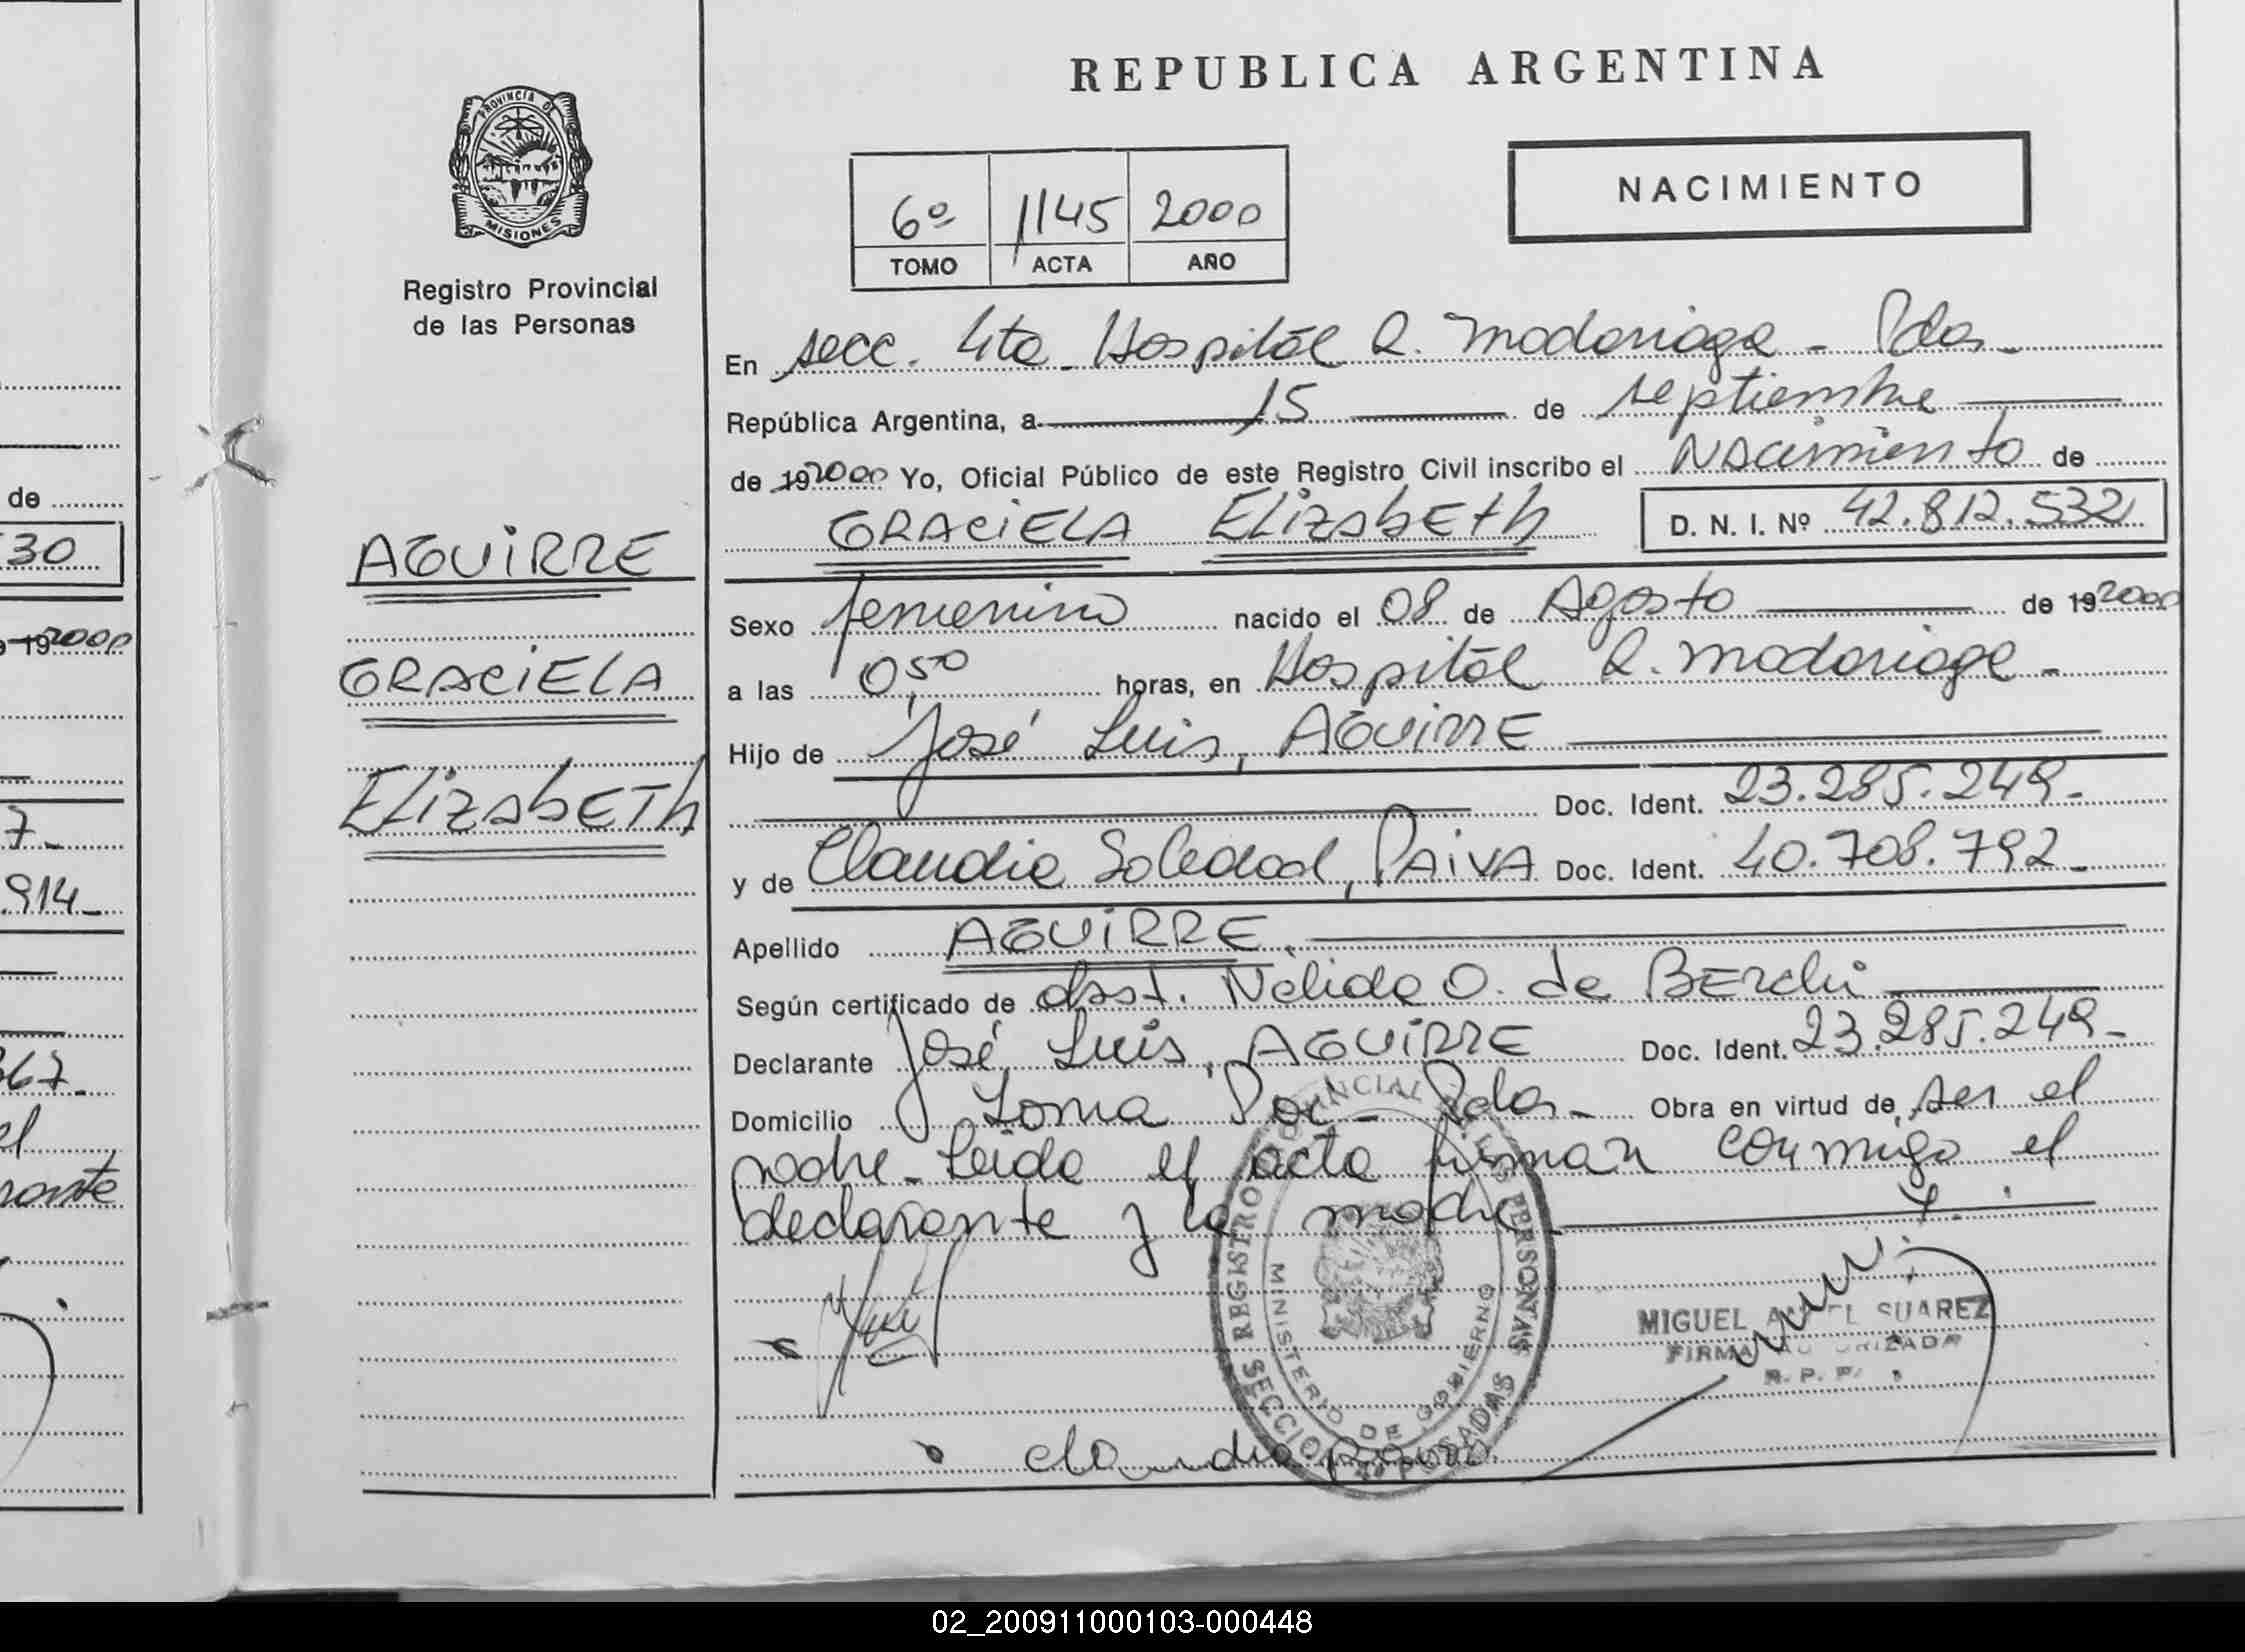 REPUBLICA ARGENTINA
PROVINCIA DE
MISIONES
Registro Provincial
de las Personas
6º 1145 2000
TOMO ACTA AÑO
NACIMIENTO
En secc. 4ta. Hospital R. Madariaga - Pdas -
República Argentina, a 15 de septiembre
de 19 2000 Yo, Oficial Público de este Registro Civil inscribo el Nacimiento de
GRACIELA ELizabETh D. N. I. Nº 42.812.532
AGUIRRE
GRACIELA
ELizabETh
Sexo femenino nacido el 08 de Agosto de 19 2000
a las 0,50 horas, en Hospital R. Madariaga -
Hijo de José Luis, AGUIRRE
Doc. Ident. 23.285.249-
y de Claudia Soledad, PAIVA Doc. Ident. 40.708.792-
Apellido AGUIRRE.
Según certificado de obst. Nélida O. de BErchi
Declarante José Luis, AGUIRRE Doc. Ident. 23.285.249-
Domicilio Loma Poi - Pdas - Obra en virtud de ser el
padre - Leída el acta firman conmigo el
declarante y la madre
REGISTRO PROVINCIAL DE LAS PERSONAS
MINISTERIO DE GOBIERNO
SECCION 4a POSADAS
MIGUEL ANGEL SUAREZ
FIRMA AUTORIZADA
R. P. P.
claudia paiva
de
30
19 2000
7-
.914-
367-
el
02_200911000103-000448